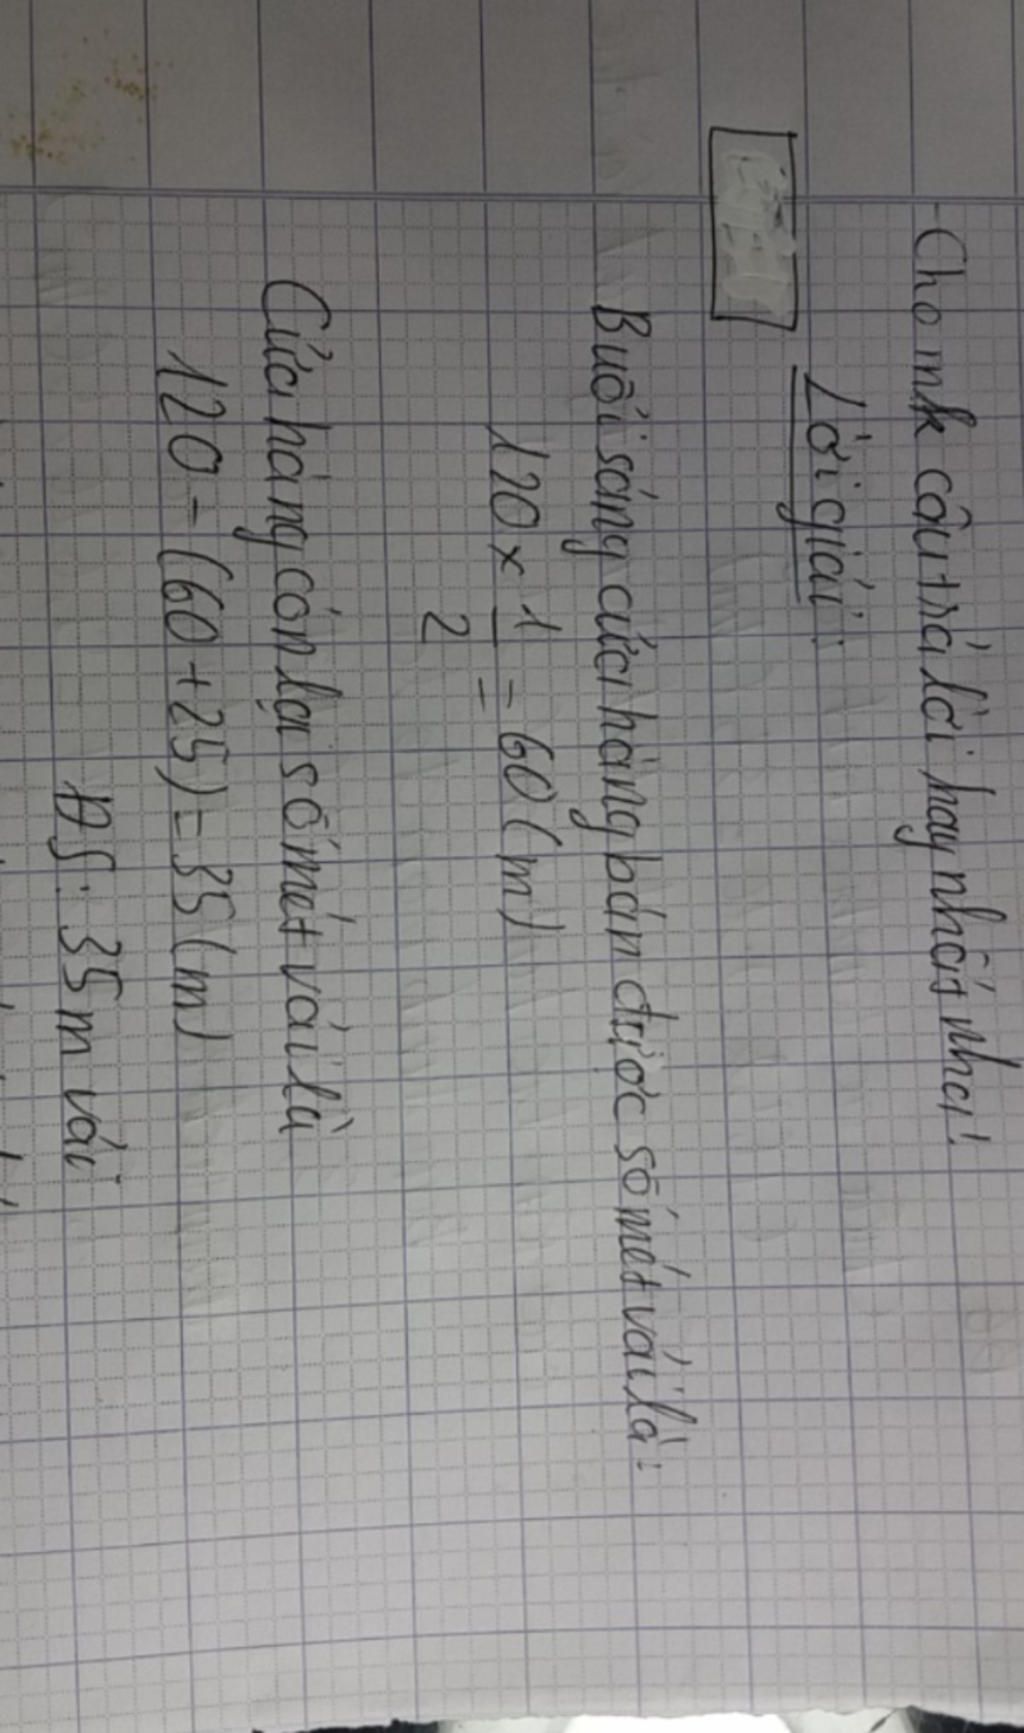 Cho mk câu trả lời hay nhất nha!
Lời giải:
Buổi sáng cửa hàng bán được số mét vải là:
120 × 1/2 = 60 (m)
Cửa hàng còn lại số mét vải là
120 - (60 + 25) = 35 (m)
ĐS: 35 m vải